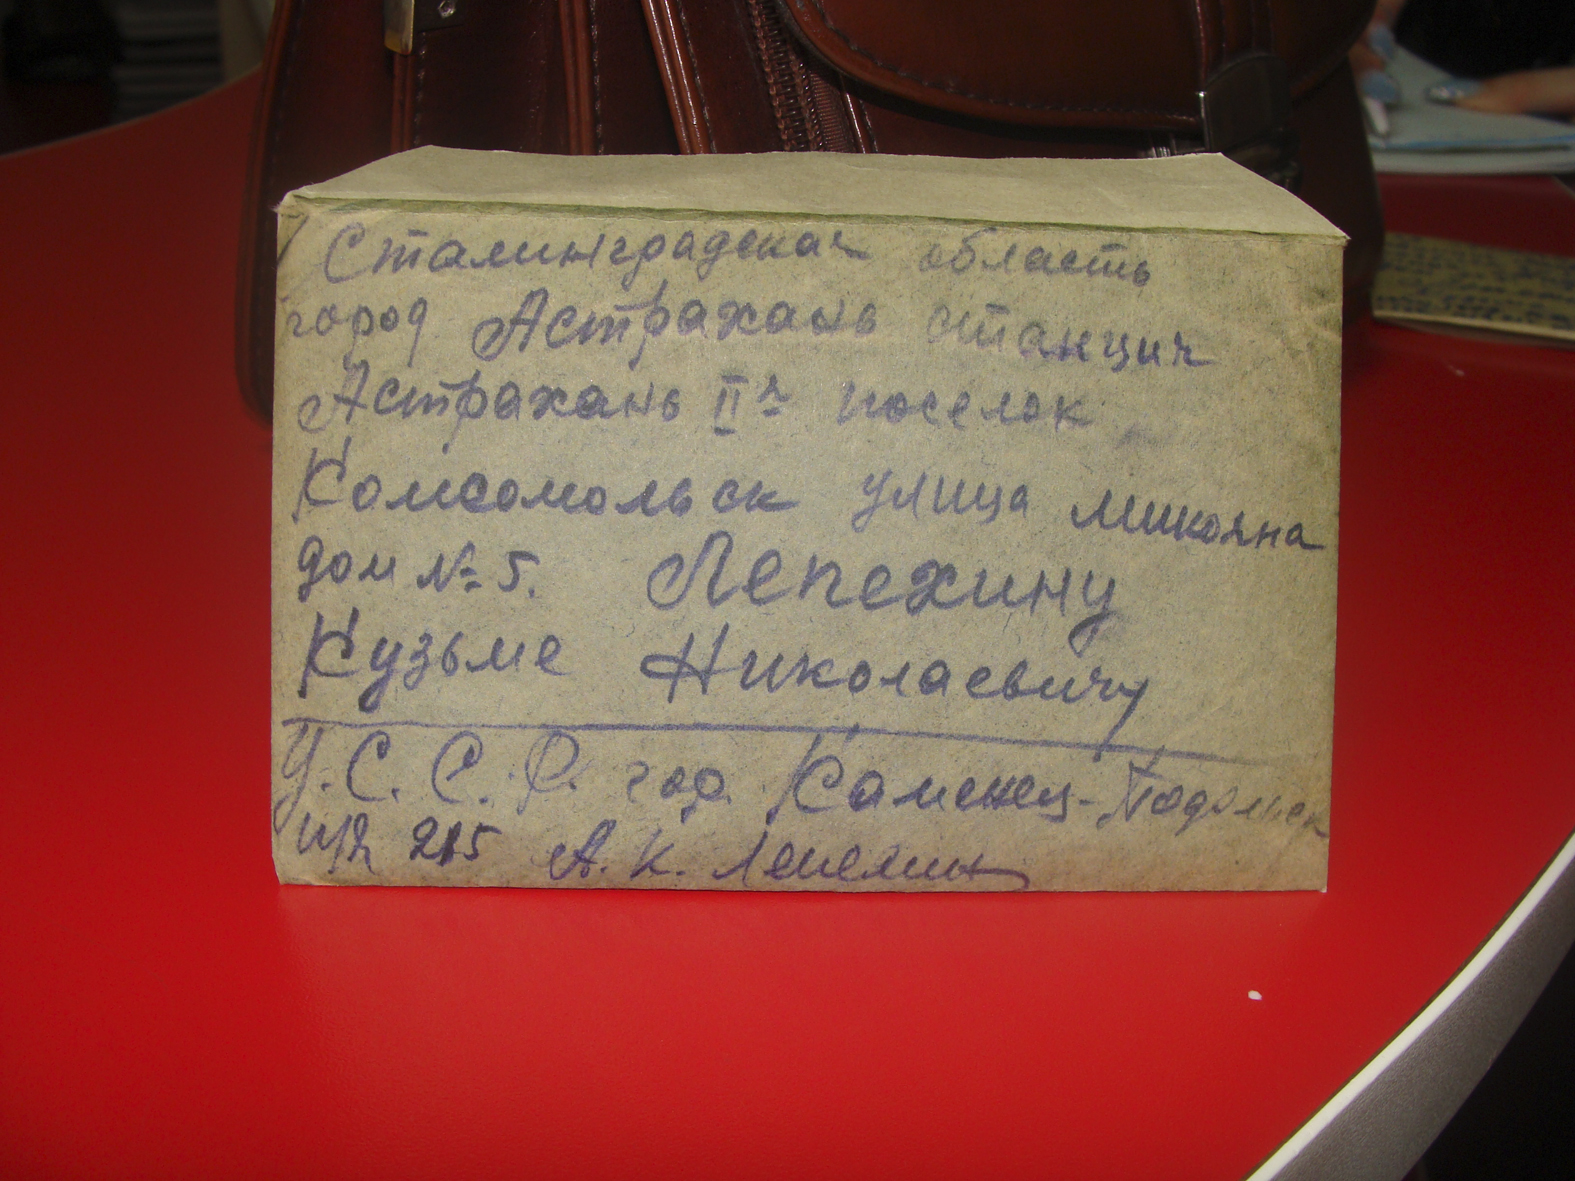 Сталинградская область
город Астрахань станция
Астрахань II я поселок
Комсомольск улица Микояна
дом № 5. Лепехину
Кузьме Николаевичу
У.С.С.Р. гор. Каменец-Подольск
п/я 215 А.К. Лепехин